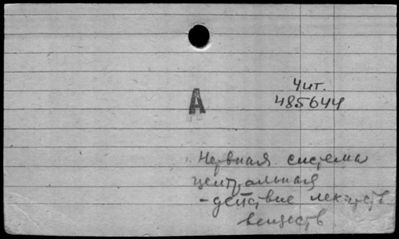 Чит.
A
485644
Нервная система
центральная
- действие лек-ств
веществ